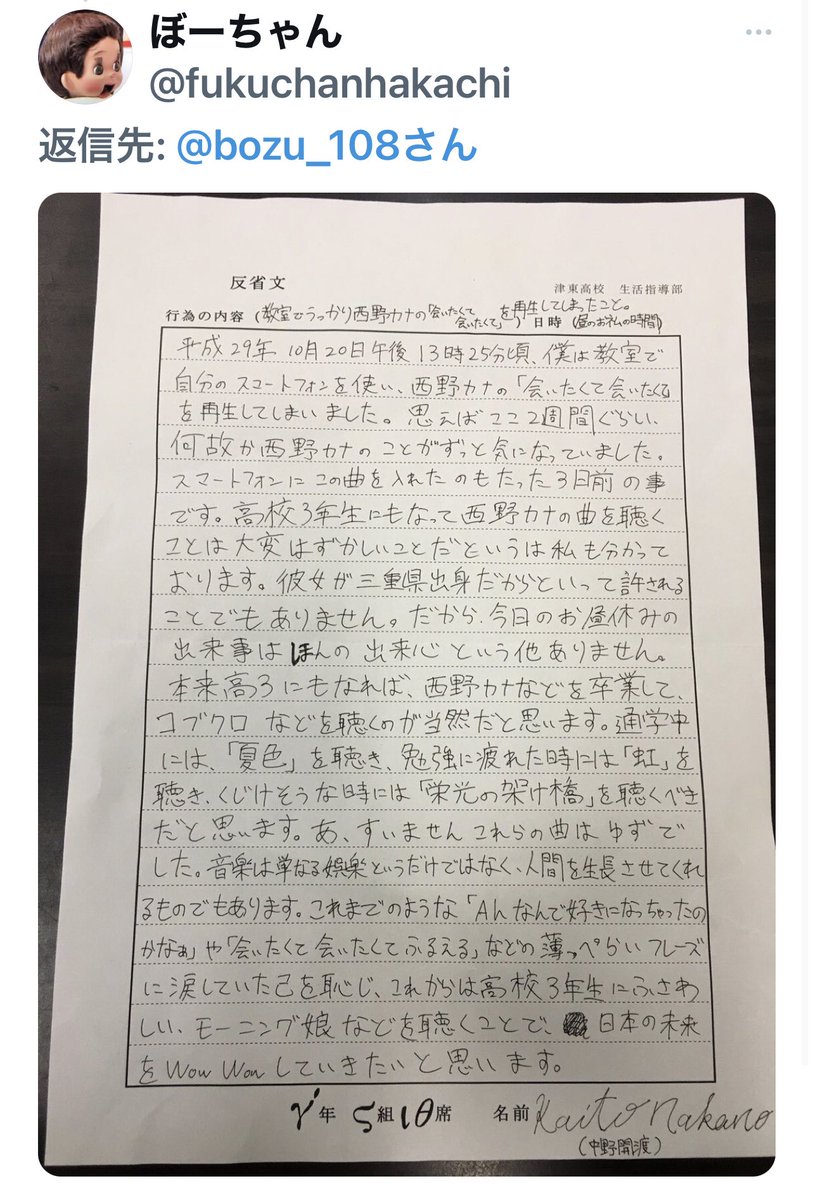 ぼーちゃん
@fukuchanhakachi
返信先: @bozu_108さん
反省文
津東高校 生活指導部
行為の内容 (教室でうっかり西野カナの「会いたくて会いたくて」を再生してしまったこと。) 日時 (昼のお弁当の時間)
平成29年 10月20日午後 13時25分頃、僕は教室で
自分のスマートフォンを使い、西野カナの「会いたくて会いたくて」
を再生してしまいました。思えばここ2週間ぐらい、
何故か西野カナのことがずっと気になっていました。
スマートフォンにこの曲を入れたのもたった3日前の事
です。高校3年生にもなって西野カナの曲を聴く
ことは大変はずかしいことだというは私も分かって
おります。彼女が三重県出身だからといって許される
ことでもありません。だから、今日のお昼休みの
出来事はほんの出来心という他ありません。
本来高3にもなれば、西野カナなどを卒業して、
コブクロなどを聴くのが当然だと思います。通学中
には、「夏色」を聴き、勉強に疲れた時には「虹」を
聴き、くじけそうな時には「栄光の架け橋」を聴くべき
だと思います。あ、すいませんこれらの曲はゆずで
した。音楽は単なる娯楽というだけではなく、人間を生長させてくれ
るものでもあります。これまでのような「Ahなんで好きになっちゃったの
かなぁ」や「会いたくて会いたくてふるえる」などの薄っぺらいフレーズ
に涙していた己を恥じ、これからは高校3年生にふさわ
しい、モーニング娘などを聴くことで、日本の未来
をWow Wowしていきたいと思います。
γ'年 ς組 ιθ席 名前 Kaito Nakano
(中野開渡)